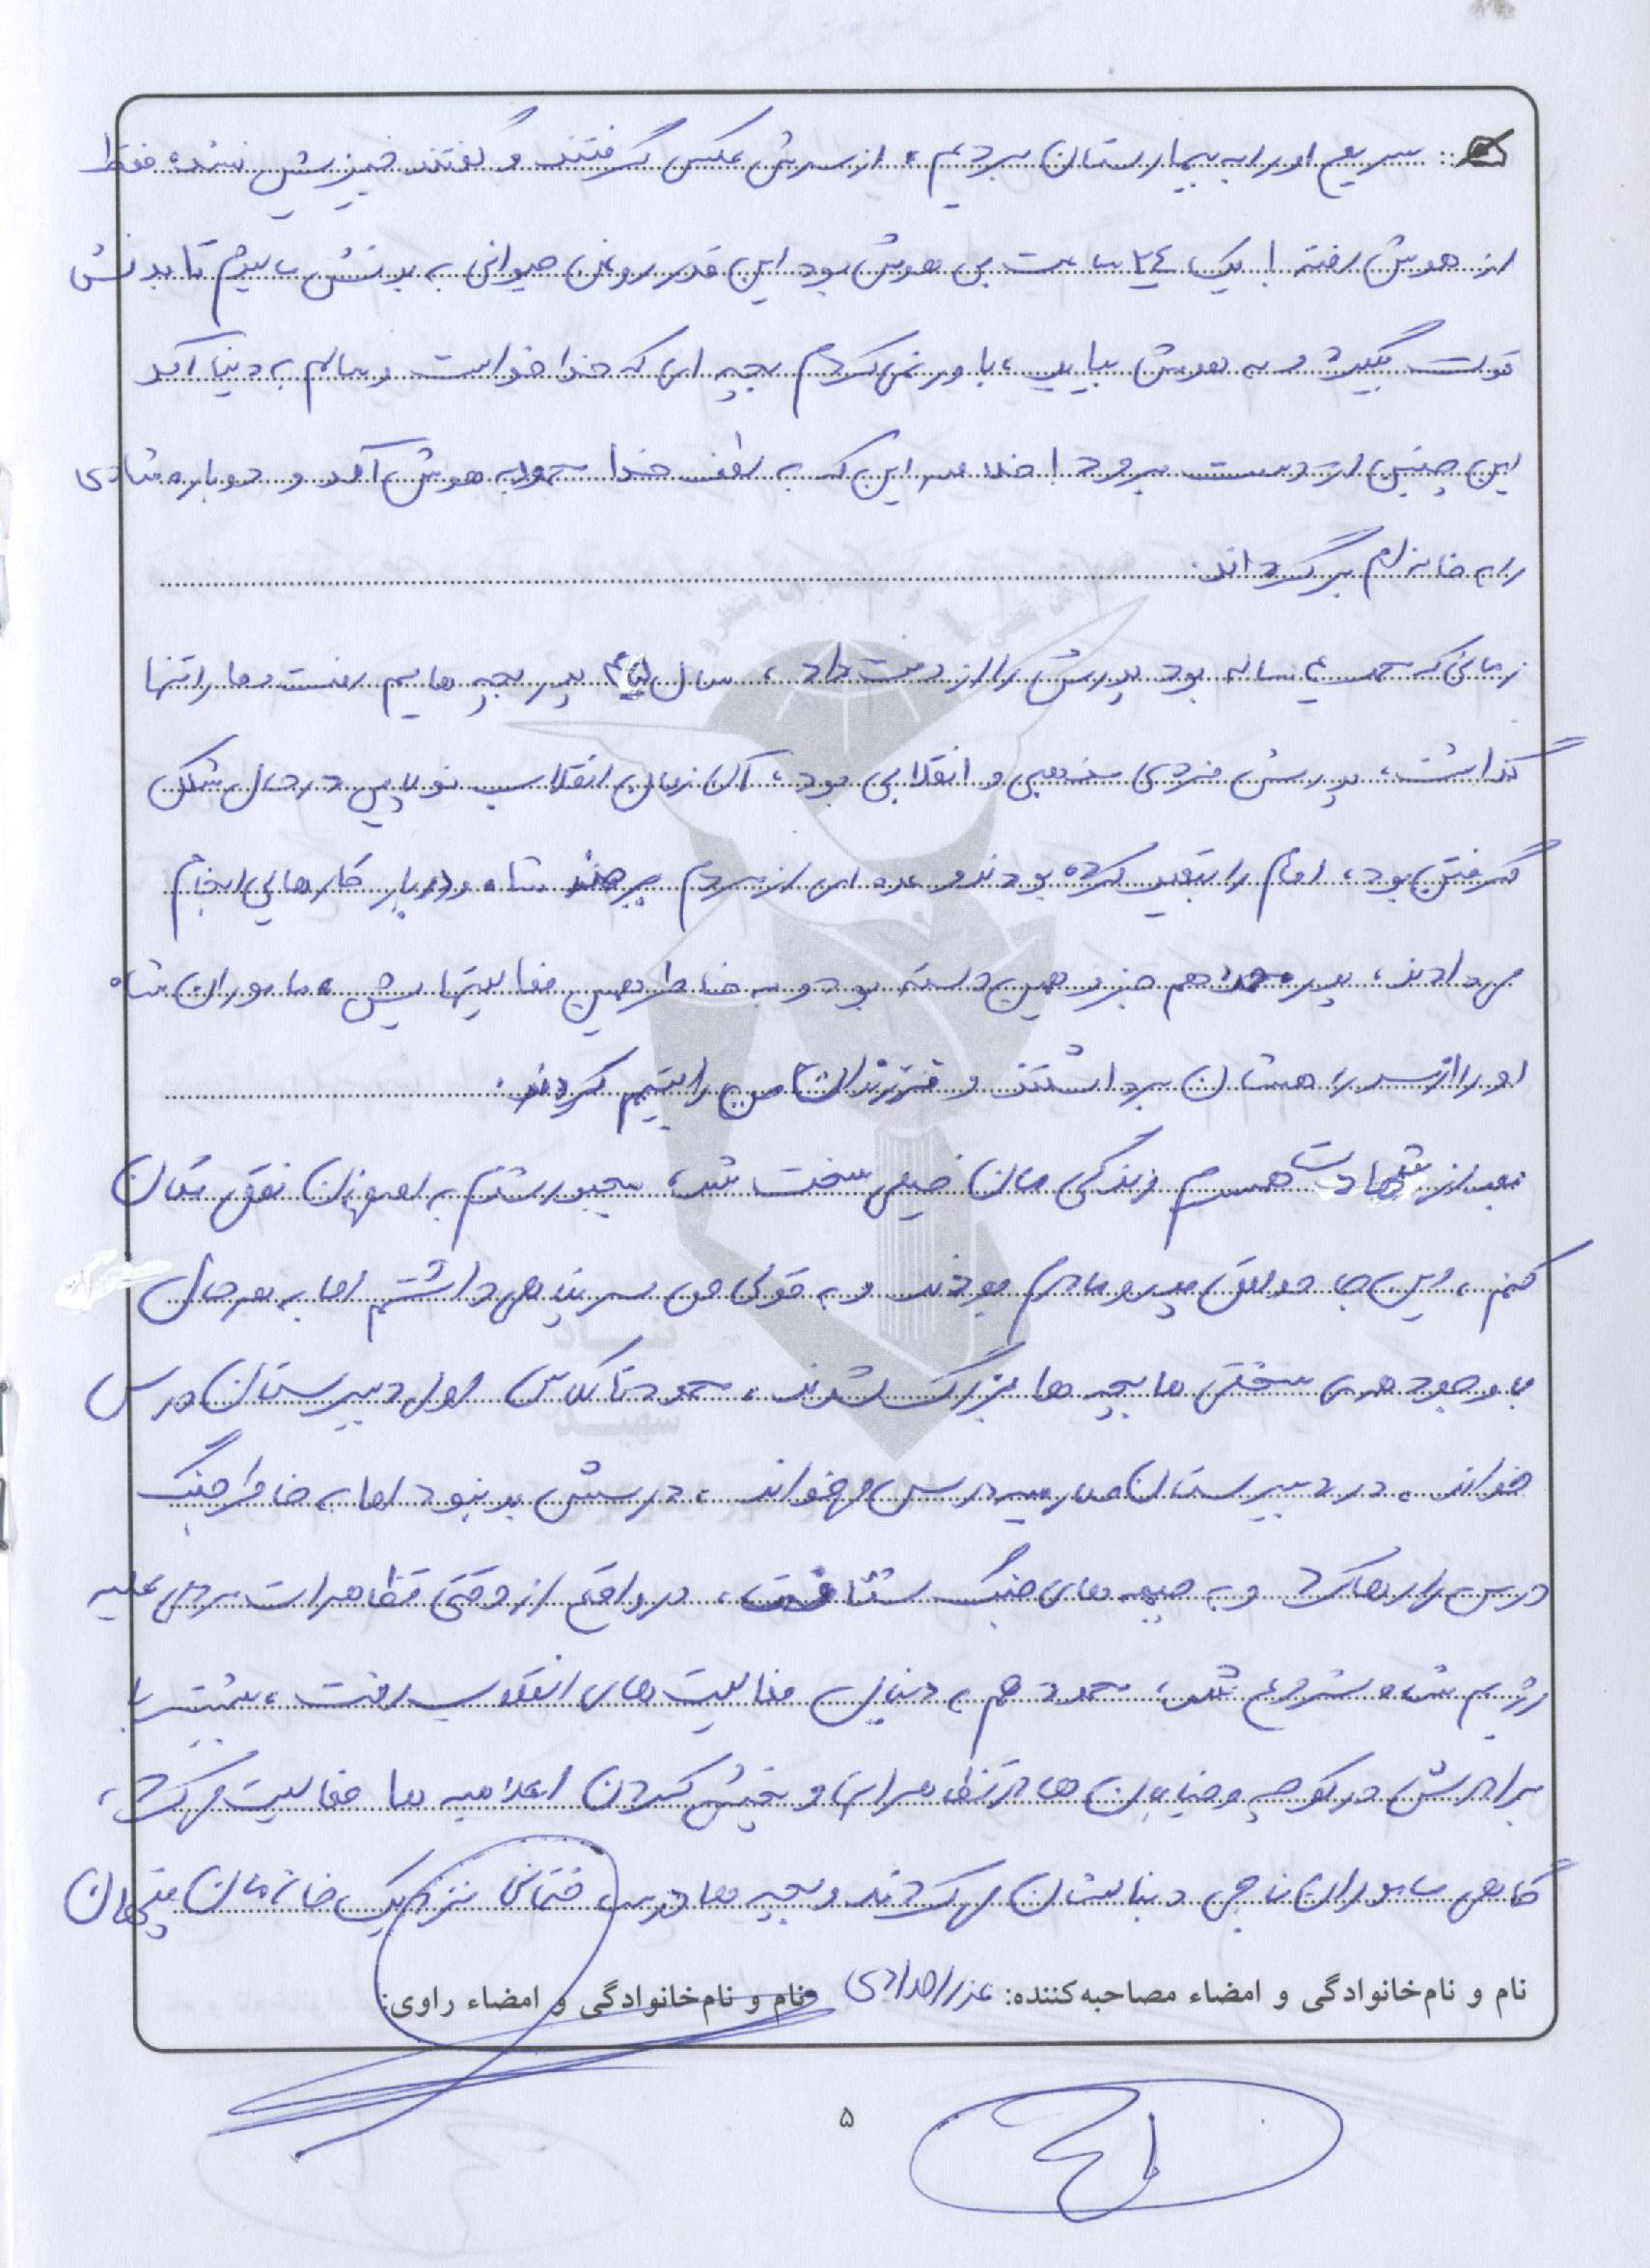 سریع او را به بیمارستان بردیم، از سرش عکس گرفتند و گفتند چیزیش نشده فقط
از هوش رفته! یک ۲۴ ساعت بی هوش بود این قدر روغن حیوانی به بدنش مالیدم تا بدنش
قوت بگیرد و به هوش بیاید، باور نمی کردم بچه ای که خدا خواست و سالم به دنیا آمد
این چنین از دست برود! خلاصه این که به لطف خدا محمود به هوش آمد و دوباره شادی
را به خانه ام برگرداند.
زمانی که محمود ساله بود پدرش را از دست داد، سال پدر بچه هایم رفت و ما را تنها
گذاشت، پدرش فردی مذهبی و انقلابی بود، آن زمان انقلاب نوپایی در حال شکل
گرفتن بود، امام را تبعید کرده بودند و عده ای از مردم بر ضد شاه و دربار کارهایی انجام
می دادند، پدر محمود هم جزو همین دسته بود و به خاطر همین فعالیتهایش، ماموران شاه
او را از سر راهشان برداشتند و فرزندان من را یتیم کردند.
بعد از شهادت همسرم زندگی مان خیلی سخت شد، مجبور شدم به اصفهان نقل مکان
کنم، این جا حداقل پدر و مادرم بودند و به قولی من سرپناهی داشتم اما به هر حال
با وجود همه سختی ها بچه ها بزرگ شدند، محمود تا کلاس اول دبیرستان درس
خواند، در دبیرستان درس می خواند، درسش بد نبود اما به خاطر جنگ
درس را رها کرد و به جبهه های جنگ شتافت، در واقع از وقتی تظاهرات مردمی علیه
رژیم شاه شروع شد، محمود هم به دنبال فعالیت های انقلاب رفت، بیشتر با
برادرش در کوچه و خیابان ها در تظاهرات و پخش کردن اعلامیه ها فعالیت می کرد،
گاهی ماموران ناجی دنبالشان می کردند و بچه ها در نزدیک خانه مان پنهان
نام و نام‌خانوادگی و امضاء مصاحبه‌کننده: عذرا امدادی نام و نام‌خانوادگی و امضاء راوی:
۵
بنیاد
شهید